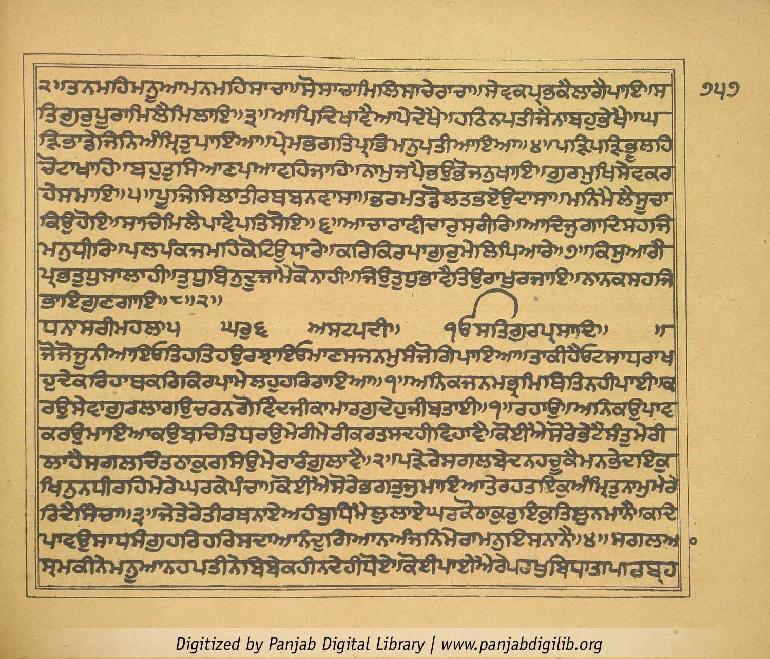 ੭੫੭
੨॥ਤਨਮਹਿਮਨੂਆਮਨਮਹਿਸਾਚਾ॥ਸੋਸਾਚਾਮਿਲਿਸਾਚੇਰਾਚਾ॥ਸੇਵਕਪ੍ਰਭਕੈਲਾਗੈਪਾਇ॥ਸ
ਤਿਗੁਰੁਪੂਰਾਮਿਲੈਮਿਲਾਇ॥੩॥ਆਪਿਦਿਖਾਵੈਆਪੇਦੇਖੈ॥ਹਠਿਨਪਤੀਜੈਨਾਬਹੁਭੇਖੈ॥ਘ
ੜਿਭਾਡੇਜਿਨਿਅੰਮ੍ਰਿਤੁਪਾਇਆ॥ਪ੍ਰੇਮਭਗਤਿਪ੍ਰਭਿਮਨੁਪਤੀਆਇਆ॥੪॥ਪੜਿਪੜਿਭੂਲਹਿ
ਚੋਟਾਖਾਹਿ॥ਬਹੁਤੁਸਿਆਣਪਆਵਹਿਜਾਹਿ॥ਨਾਮੁਜਪੈਭਉਭੋਜਨੁਖਾਇ॥ਗੁਰਮੁਖਿਸੇਵਕਰ
ਹੇਸਮਾਇ॥੫॥ਪੂਜਿਸਿਲਾਤੀਰਥਬਨਵਾਸਾ॥ਭਰਮਤਡੋਲਤਭਏਉਦਾਸਾ॥ਮਨਿਮੈਲੈਸੂਚਾ
ਕਿਉਹੋਇ॥ਸਾਚਿਮਿਲੈਪਾਵੈਪਤਿਸੋਇ॥੬॥ਆਚਾਰਾਵੀਚਾਰੁਸਰੀਰਿ॥ਆਦਿਜੁਗਾਦਿਸਹਜਿ
ਮਨੁਧੀਰਿ॥ਪਲਪੰਕਜਮਹਿਕੋਟਿਉਧਾਰੇ॥ਕਰਿਕਿਰਪਾਗੁਰੁਮੇਲਿਪਿਆਰੇ॥੭॥ਕਿਸੁਆਗੈ
ਪ੍ਰਭਤੁਧੁਸਾਲਾਹੀ॥ਤੁਧੁਬਿਨੁਦੂਜਾਮੈਕੋਨਾਹੀ॥ਜਿਉਤੁਧੁਭਾਵੈਤਿਉਰਾਖੁਰਜਾਇ॥ਨਾਨਕਸਹਜਿ
ਭਾਇਗੁਣਗਾਇ॥੮॥੨॥
ਧਨਾਸਰੀਮਹਲਾ੫ ਘਰੁ੬ ਅਸਟਪਦੀ॥ ੴਸਤਿਗੁਰਪ੍ਰਸਾਦਿ॥ ॥
ਜੋਜੋਜੂਨੀਆਇਓਤਿਹਤਿਹਉਰਝਾਇਓਮਾਣਸਜਨਮੁਸੰਜੋਗਿਪਾਇਆ॥ਤਾਕੀਹੈਓਟਸਾਧਰਾਖ
ਹੁਦੇਕਰਿਹਾਥਕਰਿਕਿਰਪਾਮੇਲਹੁਹਰਿਰਾਇਆ॥੧॥ਅਨਿਕਜਨਮਭ੍ਰਮਿਥਿਤਿਨਹੀਪਾਈ॥ਕ
ਰਉਸੇਵਾਗੁਰਲਾਗਉਚਰਨਗੋਵਿੰਦਜੀਕਾਮਾਰਗੁਦੇਹੁਜੀਬਤਾਈ॥੧॥ਰਹਾਉ॥ਅਨਿਕਉਪਾਵ
ਕਰਉਮਾਇਆਕਉਬਚਿਤਿਧਰਉਮੇਰੀਮੇਰੀਕਰਤਸਦਹੀਵਿਹਾਵੈ॥ਕੋਈਐਸੋਰੇਭੇਟੈਸੰਤੁਮੇਰੀ
ਲਾਹੈਸਗਲਚਿੰਤਠਾਕੁਰਸਿਉਮੇਰਾਰੰਗੁਲਾਵੈ॥੨॥ਪੜੇਰੇਸਗਲਬੇਦਨਹਚੂਕੈਮਨਭੇਦਇਕੁ
ਖਿਨੁਨਧੀਰਹਿਮੇਰੇਘਰਕੇਪੰਚਾ॥ਕੋਈਐਸੋਰੇਭਗਤੁਜੁਮਾਇਆਤੇਰਹਤੁਇਕੁਅੰਮ੍ਰਿਤਨਾਮੁਮੇਰੈ
ਰਿਦੈਸਿੰਚਾ॥੩॥ਜੇਤੇਰੇਤੀਰਥਨਾਏਅਹੰਬੁਧਿਮੈਲੁਲਾਏਘਰਕੋਠਾਕੁਰੁਇਕੁਤਿਲੁਨਮਾਨੈ॥ਕਦਿ
ਪਾਵਉਸਾਧਸੰਗੁਹਰਿਹਰਿਸਦਾਆਨੰਦੁਗਿਆਨਅੰਜਨਿਮੇਰਾਮਨੁਇਸਨਾਨੈ॥੪॥ਸਗਲਅ
ਸ੍ਰਮਕੀਨੇਮਨੂਆਨਹਪਤੀਨੇਬਿਬੇਕਹੀਨਦੇਹੀਧੋਏ॥ਕੋਈਪਾਈਐਰੇਪੁਰਖੁਬਿਧਾਤਾਪਾਰਬ੍ਰਹ
Digitized by Panjab Digital Library | www.panjabdigilib.org